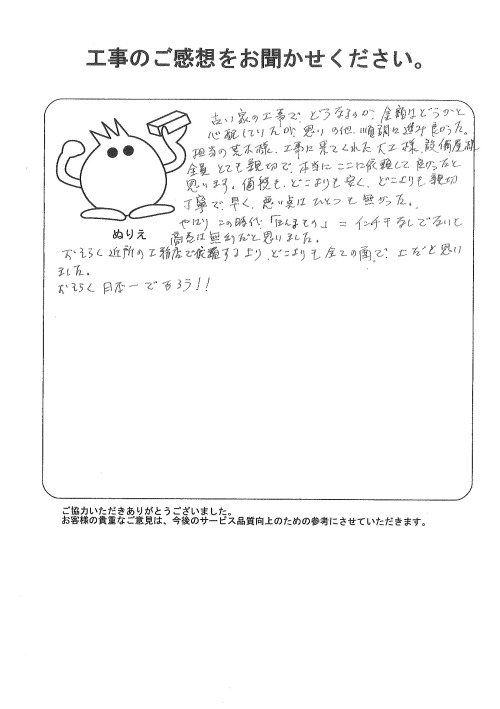 工事のご感想をお聞かせください。
古い家の工事で、どうなるのか、金額はどうかと
心配していたが、思いの他、順調に進み良かった。
担当の荒木様、工事に来てくれた大工様、設備屋様
全員とても親切で、本当にここに依頼して良かったと
思います。価格も、どこよりも安く、どこよりも親切
丁寧で、早く、悪い点はひとつも無かった。
やはりこの時代、「ほんまもの」=インチキなしでないと
ぬりえ
商売は無理だと思いました。
おそらく近所の工務店で依頼するより、どこよりも全ての面で、上だと思い
ました。
おそらく日本一であろう!!
ご協力いただきありがとうございました。
お客様の貴重なご意見は、今後のサービス品質向上のための参考にさせていただきます。